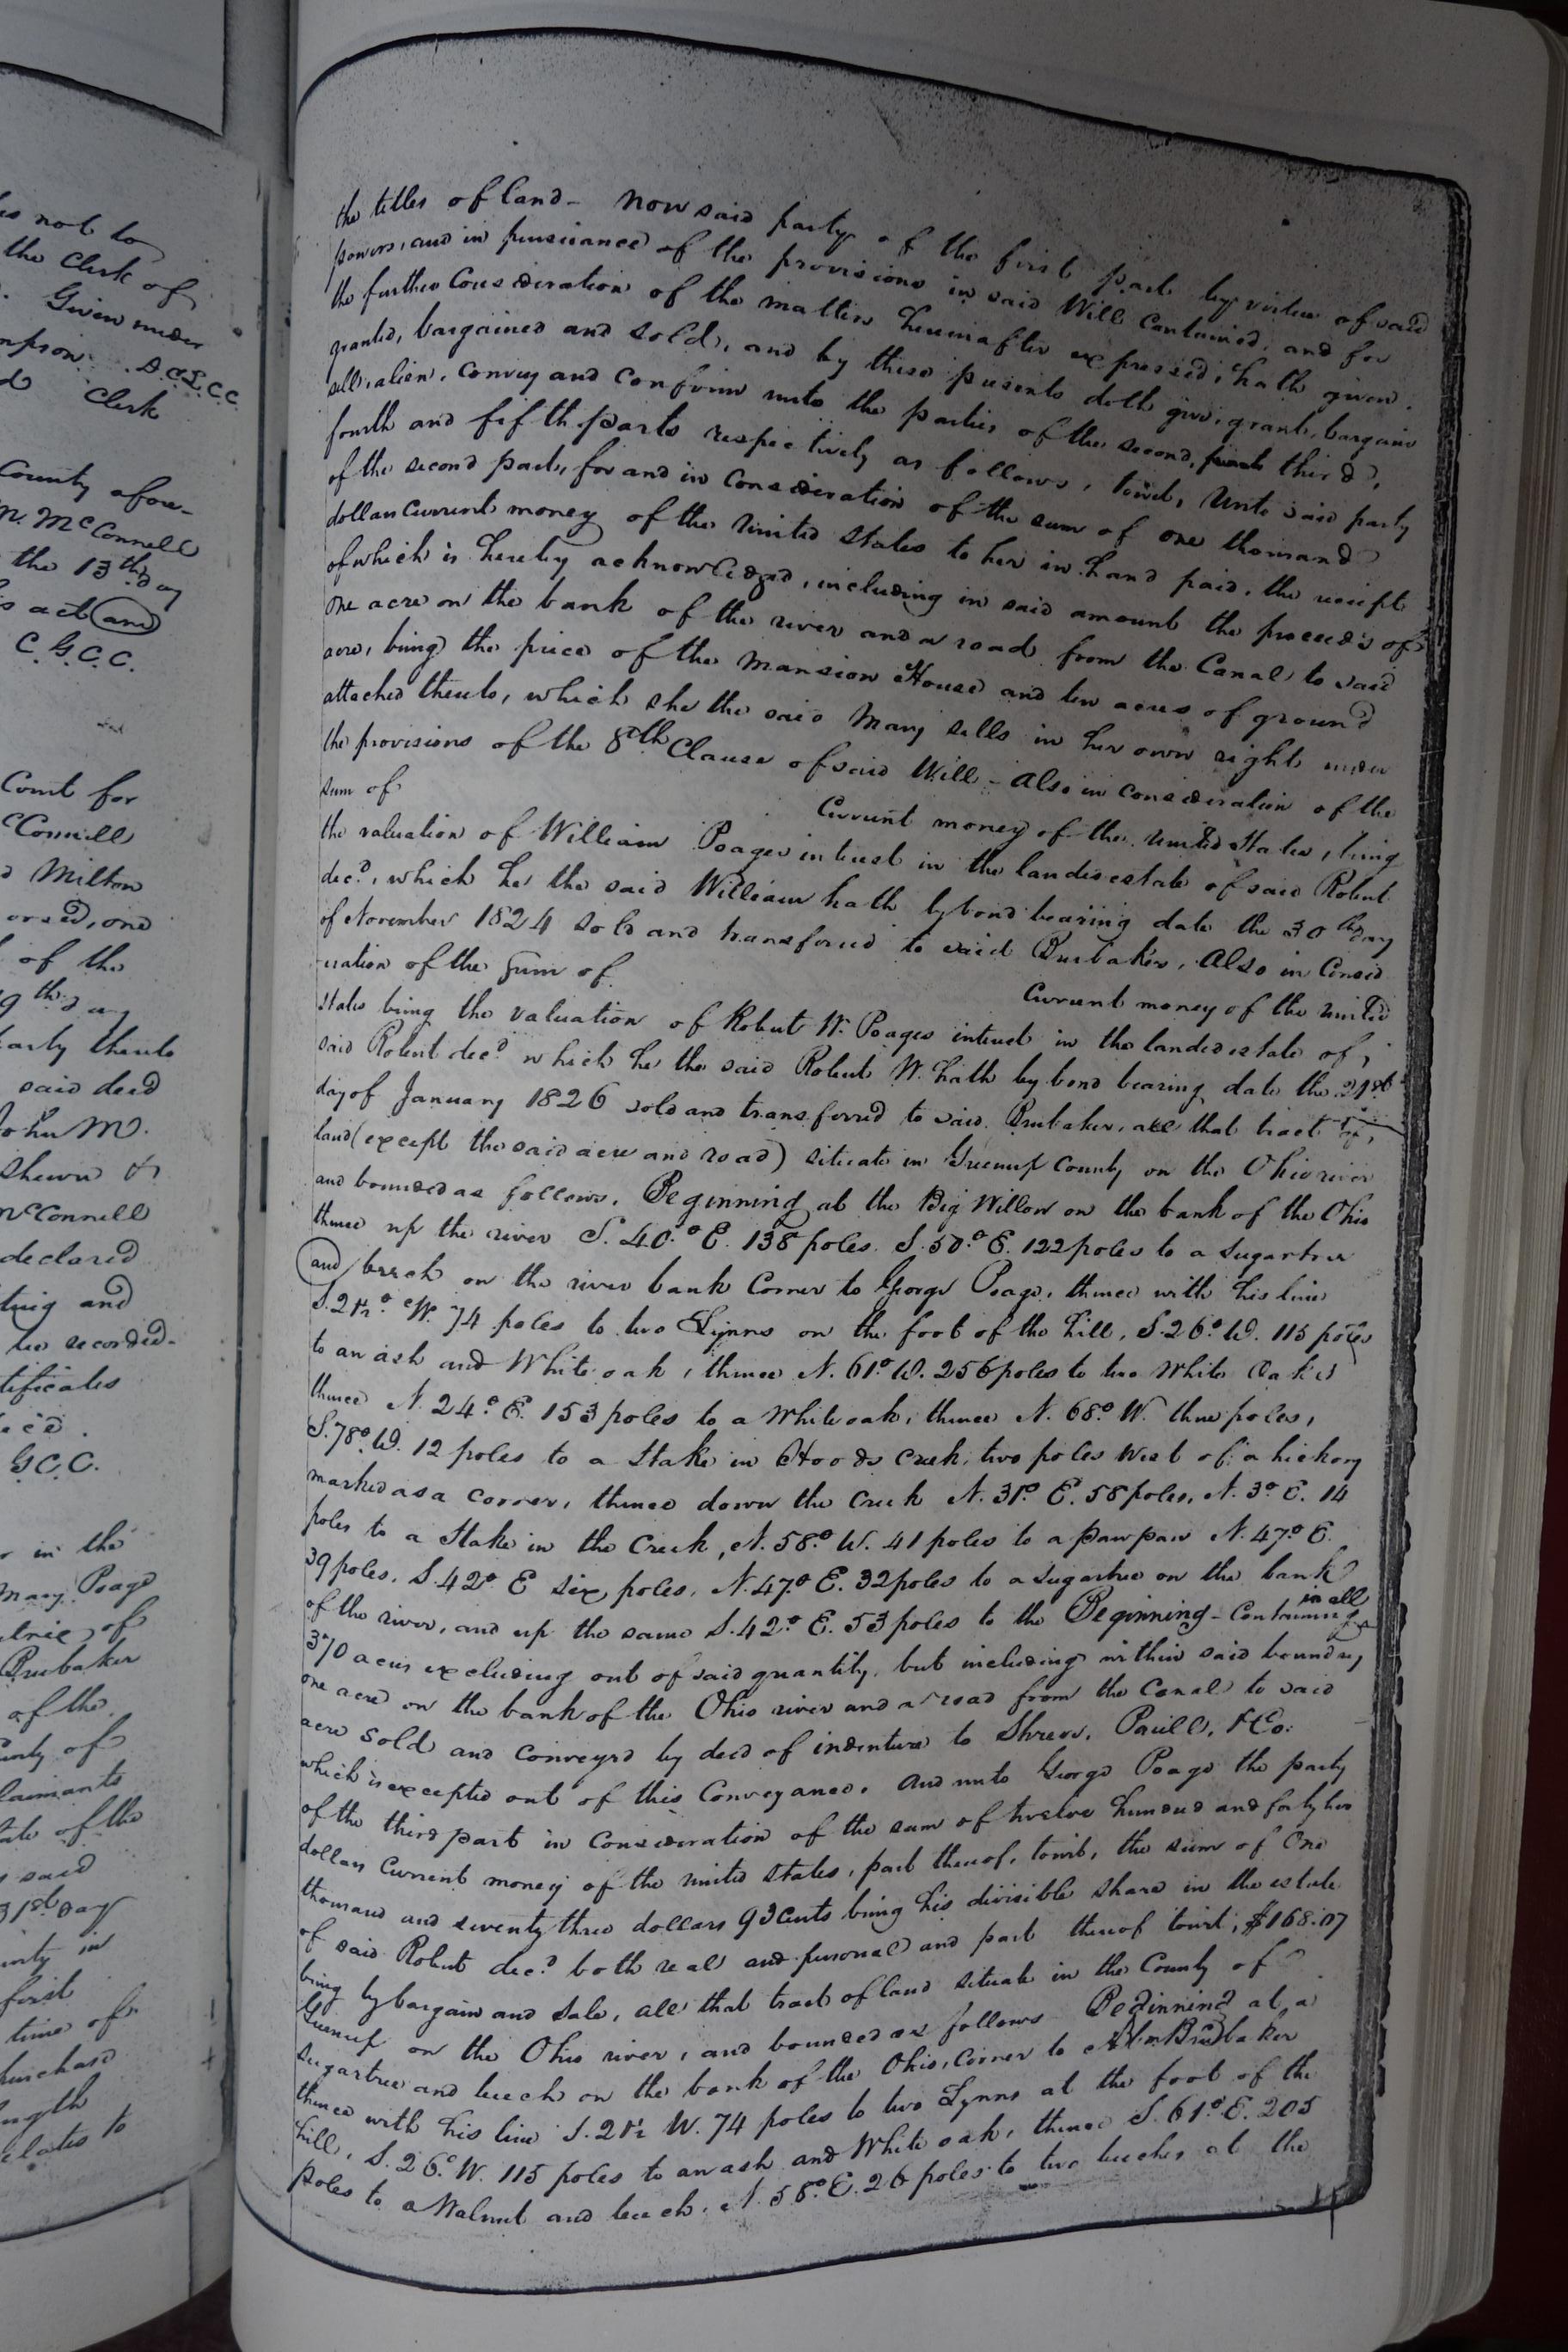 es not to
the Clerk of
Given under
mpson D.C.G.C.C.
d Clerk
County afore-
m. McConnell
the 13th day
s act and
C.G.C.C.
Court for
cConnell
d Milton
orsed, one
of the
9th day
party thereto
said deed
John M.
shewn &
McConnell
declared
ting and
be recorded-
tificates
G.C.C.
r in the
Mary Poage
utrix of
Brubaker
of the
unty of
laimants
ate of the
y said
31st day
unty in
first
time of
purchased
ength
elates to
the titles of land - Now said party of the first part by virtue of said
powers, and in pursuance of the provisions in said Will contained, and for
the further Consideration of the matters hereinafter expressed, hath given,
granted, bargained and sold, and by these presents doth give, grant, bargain
sell, alien, Convey and Confirm unto the parties of the second, third,
fourth and fifth parts respectively as follows, towit, Unto said party
of the second part, for and in Consideration of the sum of one thousand
dollars Current money of the United States to her in hand paid, the receipt
of which is hereby acknowledged, including in said amount the proceeds of
one acre on the bank of the river and a road from the Canal to said
acre, being the price of the Mansion House and ten acres of ground
attached thereto, which she the said Mary sells in her own right under
the provisions of the 8th Clause of said Will - Also in Consideration of the
sum of Current money of the United States, being
the valuation of William Poages interest in the landed estate of said Robert
decd, which he the said William hath by bond bearing date the 30th day
of November 1824 sold and transferred to said Brubaker, Also in Consid-
eration of the Sum of Current money of the United
States being the valuation of Robert W. Poages interest in the landed estate of
said Robert decd which he the said Robert W. hath by bond bearing date the 21st
day of January 1826 sold and transferred to said Brubaker, all that tract of
land (except the said acre and road) situate in Greenup County on the Ohio river
and bounded as follows, Beginning at the Big Willow on the bank of the Ohio
thence up the river S. 40° E. 138 poles. S. 50° E. 122 poles to a sugartree
and beech on the river bank Corner to George Poage, thence with his line
S. 21½° W. 74 poles to two Lynns on the foot of the hill, S. 26° W. 115 poles
to an ash and White oak, thence N. 61° W. 256 poles to two White Oaks
thence N. 24° E. 153 poles to a White oak, thence N. 68° W. three poles,
S. 78° W. 12 poles to a Stake in Hoods Creek, two poles West of a hickory
marked as a corner, thence down the Creek N. 31° E. 58 poles, N. 3° E. 14
poles to a Stake in the Creek, N. 58° W. 41 poles to a pawpaw N. 47° E.
39 poles, S. 42° E six poles, N. 47° E. 32 poles to a sugartree on the bank
of the river, and up the same S. 42° E. 53 poles to the Beginning - Containing in all
370 acres excluding out of said quantity, but including within said boundry
one acre on the bank of the Ohio river and a road from the Canal to said
acre sold and Conveyed by deed of indenture to Shreve, Paull, & Co.
which is excepted out of this Conveyance. And unto George Poage the party
of the third part in Consideration of the sum of twelve hundred and forty two
dollars Current money of the United States, part thereof, towit, the sum of One
thousand and seventy three dollars 93 Cents being his divisible share in the estate
of said Robert decd both real and personal and part thereof towit, $168.07
being by bargain and Sale, all that tract of land situate in the County of
Greenup on the Ohio river, and bounded as follows Beginning at a
sugartree and beech on the bank of the Ohio, Corner to Brubaker
thence with his line S. 21½ W. 74 poles to two Lynns at the foot of the
hill, S. 26° W. 115 poles to an ash and White oak, thence S. 61° E. 205
poles to a Walnut and beech, N. 58° E. 26 poles to two beeches at the